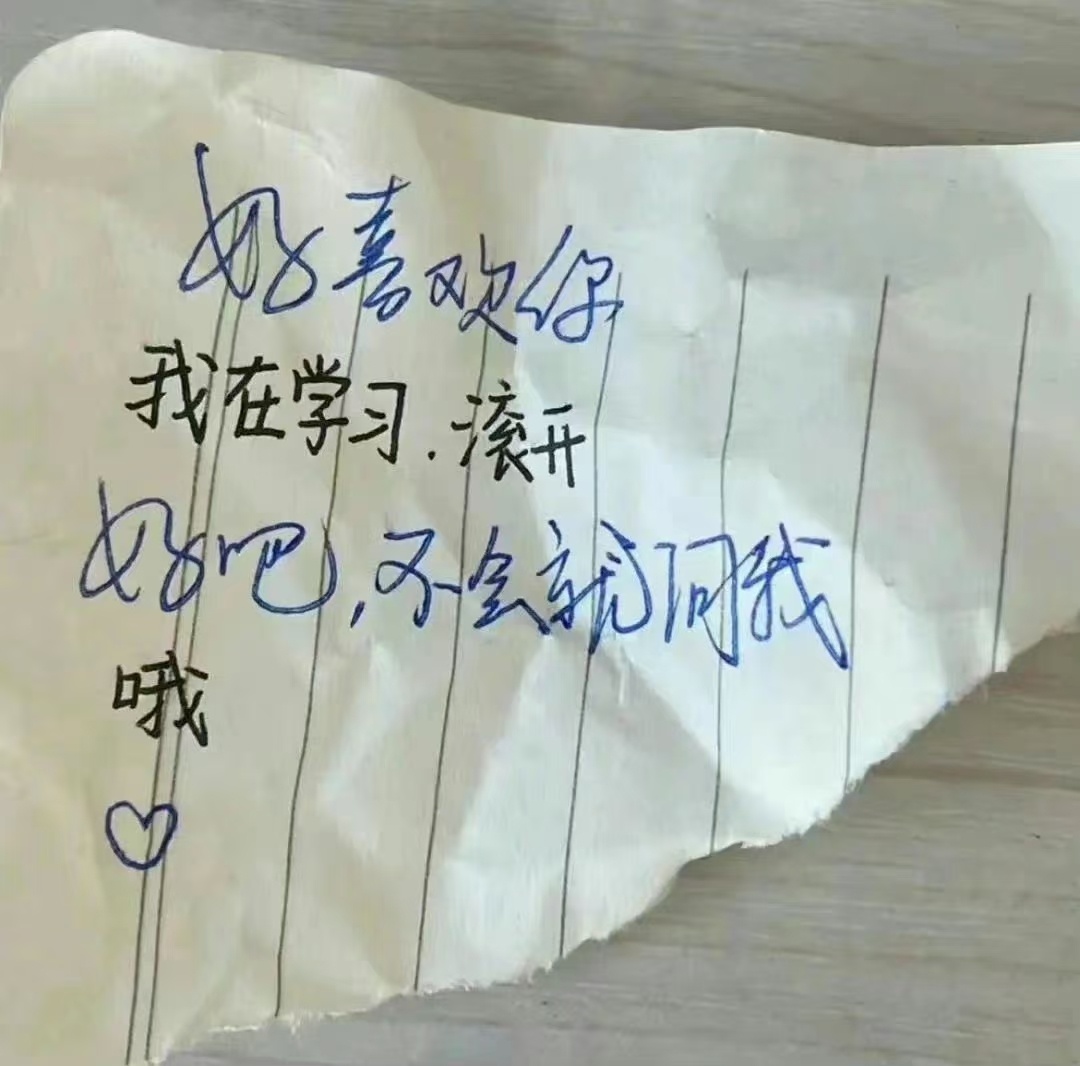 好喜欢你
我在学习.滚开
好吧,不会就问我
哦
♡